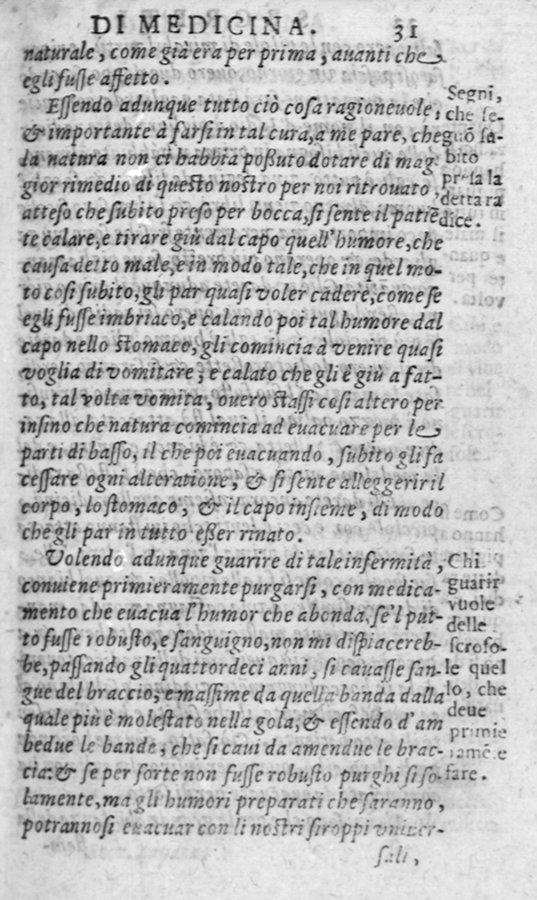 DI MEDICINA. 31
naturale, come già era per prima, auanti che
egli fusse affetto.
Essendo adunque tutto ciò cosa ragioneuole,
& importante à farsi in tal cura, a me pare, che
la natura non ci habbia possuto dotare di mag
gior rimedio di questo nostro per noi ritrouato,
atteso che subito preso per bocca, si sente il patiē
te calare, e tirare giù dal capo quell'humore, che
causa detto male, e in modo tale, che in quel mo-
to cosi subito, gli par quasi voler cadere, come se
egli fusse imbriaco, e calando poi tal humore dal
capo nello stomaco, gli comincia à venire quasi
voglia di vomitare, e calato che gli è giù a fat-
to, tal volta vomita, ouero stassi cosi altero per
insino che natura comincia ad euacuare per le
parti di basso, il che poi euacuando, subito gli fa
cessare ogni alteratione, & si sente alleggerir il
corpo, lo stomaco, & il capo insieme, di modo
che gli par in tutto esser rinato.
Volendo adunque guarire di tale infermità,
conuiene primieramente purgarsi, con medica-
mento che euacua l'humor che abonda, se'l put-
to fusse robusto, e sanguigno, non mi dispiacereb-
be, passando gli quattordeci anni, si cauasse san-
gue del braccio, e massime da quella banda dalla
quale più è molestato nella gola, & essendo d'am
bedue le bande, che si caui da amendue le brac-
cia: & se per forte non fusse robusto purghisi so-
lamente, ma gli humori preparati che saranno,
potrannosi euacuar con li nostri siroppi vniuer-
sali,
Segni,
che se-
guō sa-
bito
presa la
detta ra
dice.
Chi
guarir
vuole
delle
scrofo-
le quel
lo, che
deue
primie
ramēte
fare.